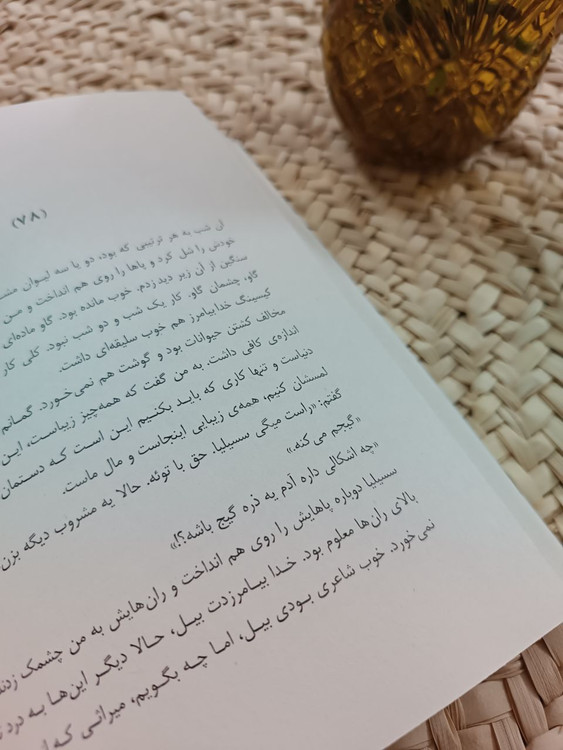 (۷۸)
آن شب به هر ترتیبی که بود، دو یا سه لیوان
خودش را شل کرد و پاها را روی هم انداخت و من
سنگین از آن زیر دید زدم. خوب مانده بود. گاو ماده‌ای
گاو، چشمان گاو. کار یک شب و دو شب نبود. کلی کار
کیسینگ خدا بیامرز هم خوب سلیقه‌ای داشت.
مخالف کشتن حیوانات بود و گوشت هم نمی‌خورد. گمانم
اندازه‌ی کافی داشت. به من گفت که همه‌چیز زیباست، این
دنیاست و تنها کاری که باید بکنیم این است که دستمان
لمسشان کنیم؛ همه‌ی زیبایی اینجاست و مال ماست.
گفتم: «راست میگی سسیلیا. حق با توئه. حالا یه مشروب دیگه بزن
«گیجم می کنه.»
«چه اشکالی داره آدم یه ذره گیج باشه؟!»
سسیلیا دوباره پاهایش را روی هم انداخت و ران‌هایش به من چشمک زدند
بالای ران‌ها معلوم بود. خدا بیامرزدت بیل، حالا دیگر این‌ها به درد
نمی‌خورد. خوب شاعری بودی بیل، اما چه بگویم، میراثی که